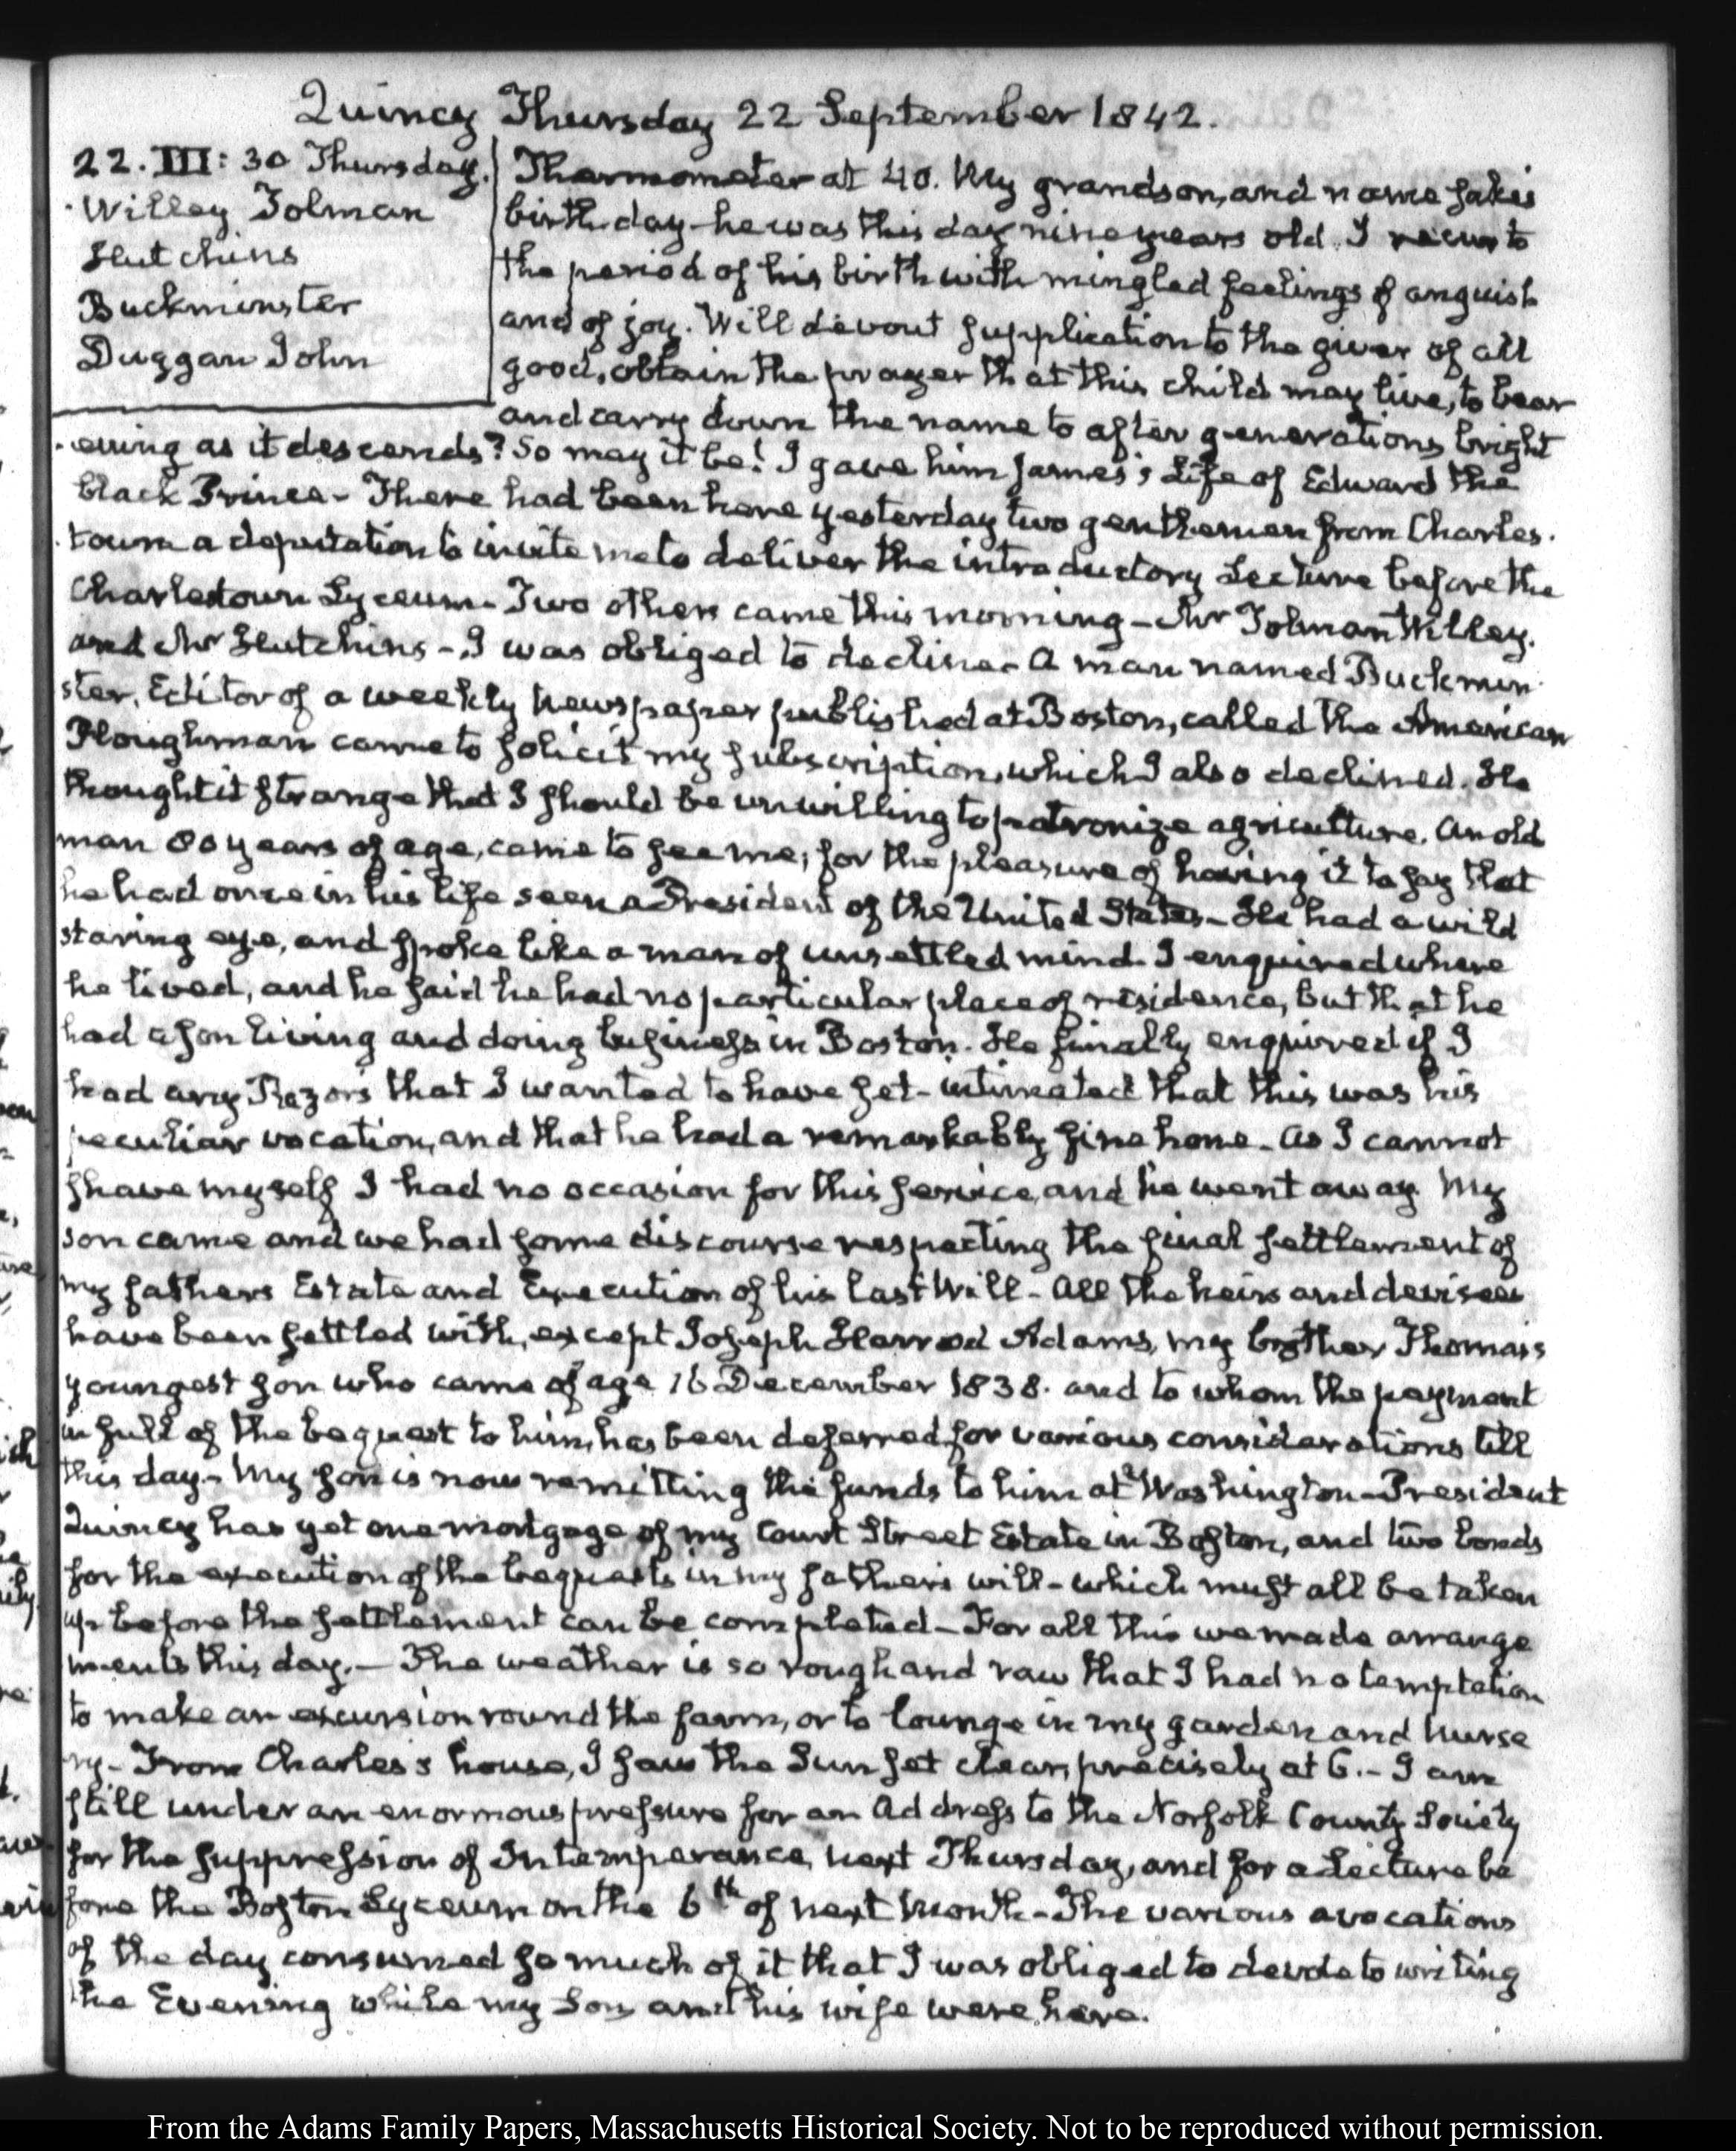 Quincy Thursday 22 September 1842.
22. III: 30 Thursday.
Willey Tolman
Hutchins
Buckminster
Duggan John
Thermometer at 40. My grandson, and name sake's
birth-day—he was this day nine years old. I recur to
the period of his birth with mingled feelings of anguish
and of joy. Will devout supplication to the giver of all
good, obtain the prayer that this child may live, to bear
and carry down the name to after generations, bright
ening as it descends? So may it be! I gave him James's Life of Edward the
black Prince— There had been here yesterday two gentlemen from Charles-
town a deputation to invite me to deliver the introductory Lecture before the
Charlestown Lyceum— Two others came this morning— Mr Tolman Willey.
and Mr Hutchins— I was obliged to decline— A man named Buckmin
ster, Editor of a weekly Newspaper published at Boston, called the American
Ploughman came to solicit my subscription, which I also declined. He
thought it strange that I should be unwilling to patronize agriculture. An old
man 80 years of age, came to see me, for the pleasure of having it to say that
he had once in his life seen a President of the United States— He had a wild
staring eye, and spoke like a man of unsettled mind. I enquired where
he lived, and he said he had no particular place of residence, but that he
had a son living and doing business in Boston. He finally enquired if I
had any Razors that I wanted to have set— intimated that this was his
peculiar vocation, and that he had a remarkably fine hone— As I cannot
shave myself I had no occasion for this service, and he went away. My
son came and we had some discourse respecting the final settlement of
my fathers Estate and Execution of his last Will— All the heirs and devisees
have been settled with, except Joseph Harrod Adams, my brother Thomas's
youngest son who came of age 16 December 1838. and to whom the payment
in full of the bequest to him, has been deferred for various considerations till
this day— My son is now remitting the funds to him at Washington— President
Quincy has yet one mortgage of my Court Street Estate in Boston, and two bonds
for the execution of the bequests in my father's will— which must all be taken
up before the settlement can be completed— For all this we made arrange
ments this day.— The weather is so rough and raw that I had no temptation
to make an excursion round the farm, or to lounge in my garden and nurse
ry— From Charles's house, I saw the Sun set clear, precisely at 6.— I am
still under an enormous pressure for an Address to the Norfolk County Society
for the suppression of Intemperance, next Thursday, and for a Lecture be
fore the Boston Lyceum on the 6th of next Month— The various avocations
of the day consumed so much of it that I was obliged to devote to writing
the Evening while my Son and his wife were here.
From the Adams Family Papers, Massachusetts Historical Society. Not to be reproduced without permission.